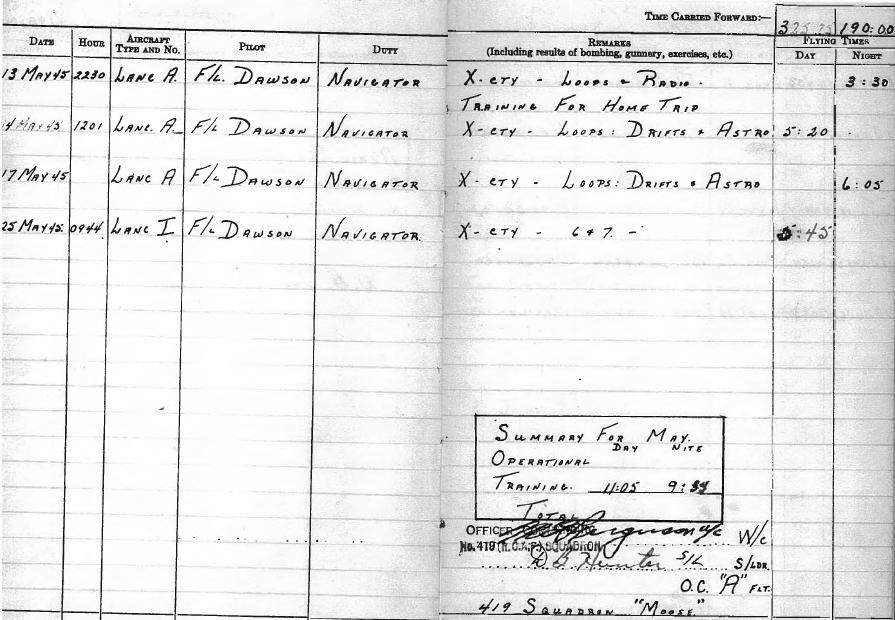 TIME CARRIED FORWARD:— 190:00
DATE HOUR AIRCRAFT TYPE AND NO. PILOT DUTY REMARKS (Including results of bombing, gunnery, exercises, etc.) FLYING TIMES DAY NIGHT
13 MAY 45 2230 LANC A. F/L. DAWSON NAVIGATOR X-CTY - LOOPS & RADIO. 3:30
TRAINING FOR HOME TRIP
14 MAY 45 1201 LANC. A. F/L DAWSON NAVIGATOR X-CTY - LOOPS: DRIFTS & ASTRO 5:20
17 MAY 45 LANC A F/L DAWSON NAVIGATOR X-CTY - LOOPS: DRIFTS & ASTRO 6:05
25 MAY 45. 0944 LANC I F/L DAWSON NAVIGATOR. X-CTY - 6 & 7. - 5:45
SUMMARY FOR MAY.
DAY NITE
OPERATIONAL
TRAINING. 11:05
TOTAL
OFFICER Ferguson W/C W/C
No. 419 (R.C.A.F.) SQUADRON
D B Hunter S/L S/LDR.
O.C. "A" FLT.
419 SQUADRON "MOOSE"